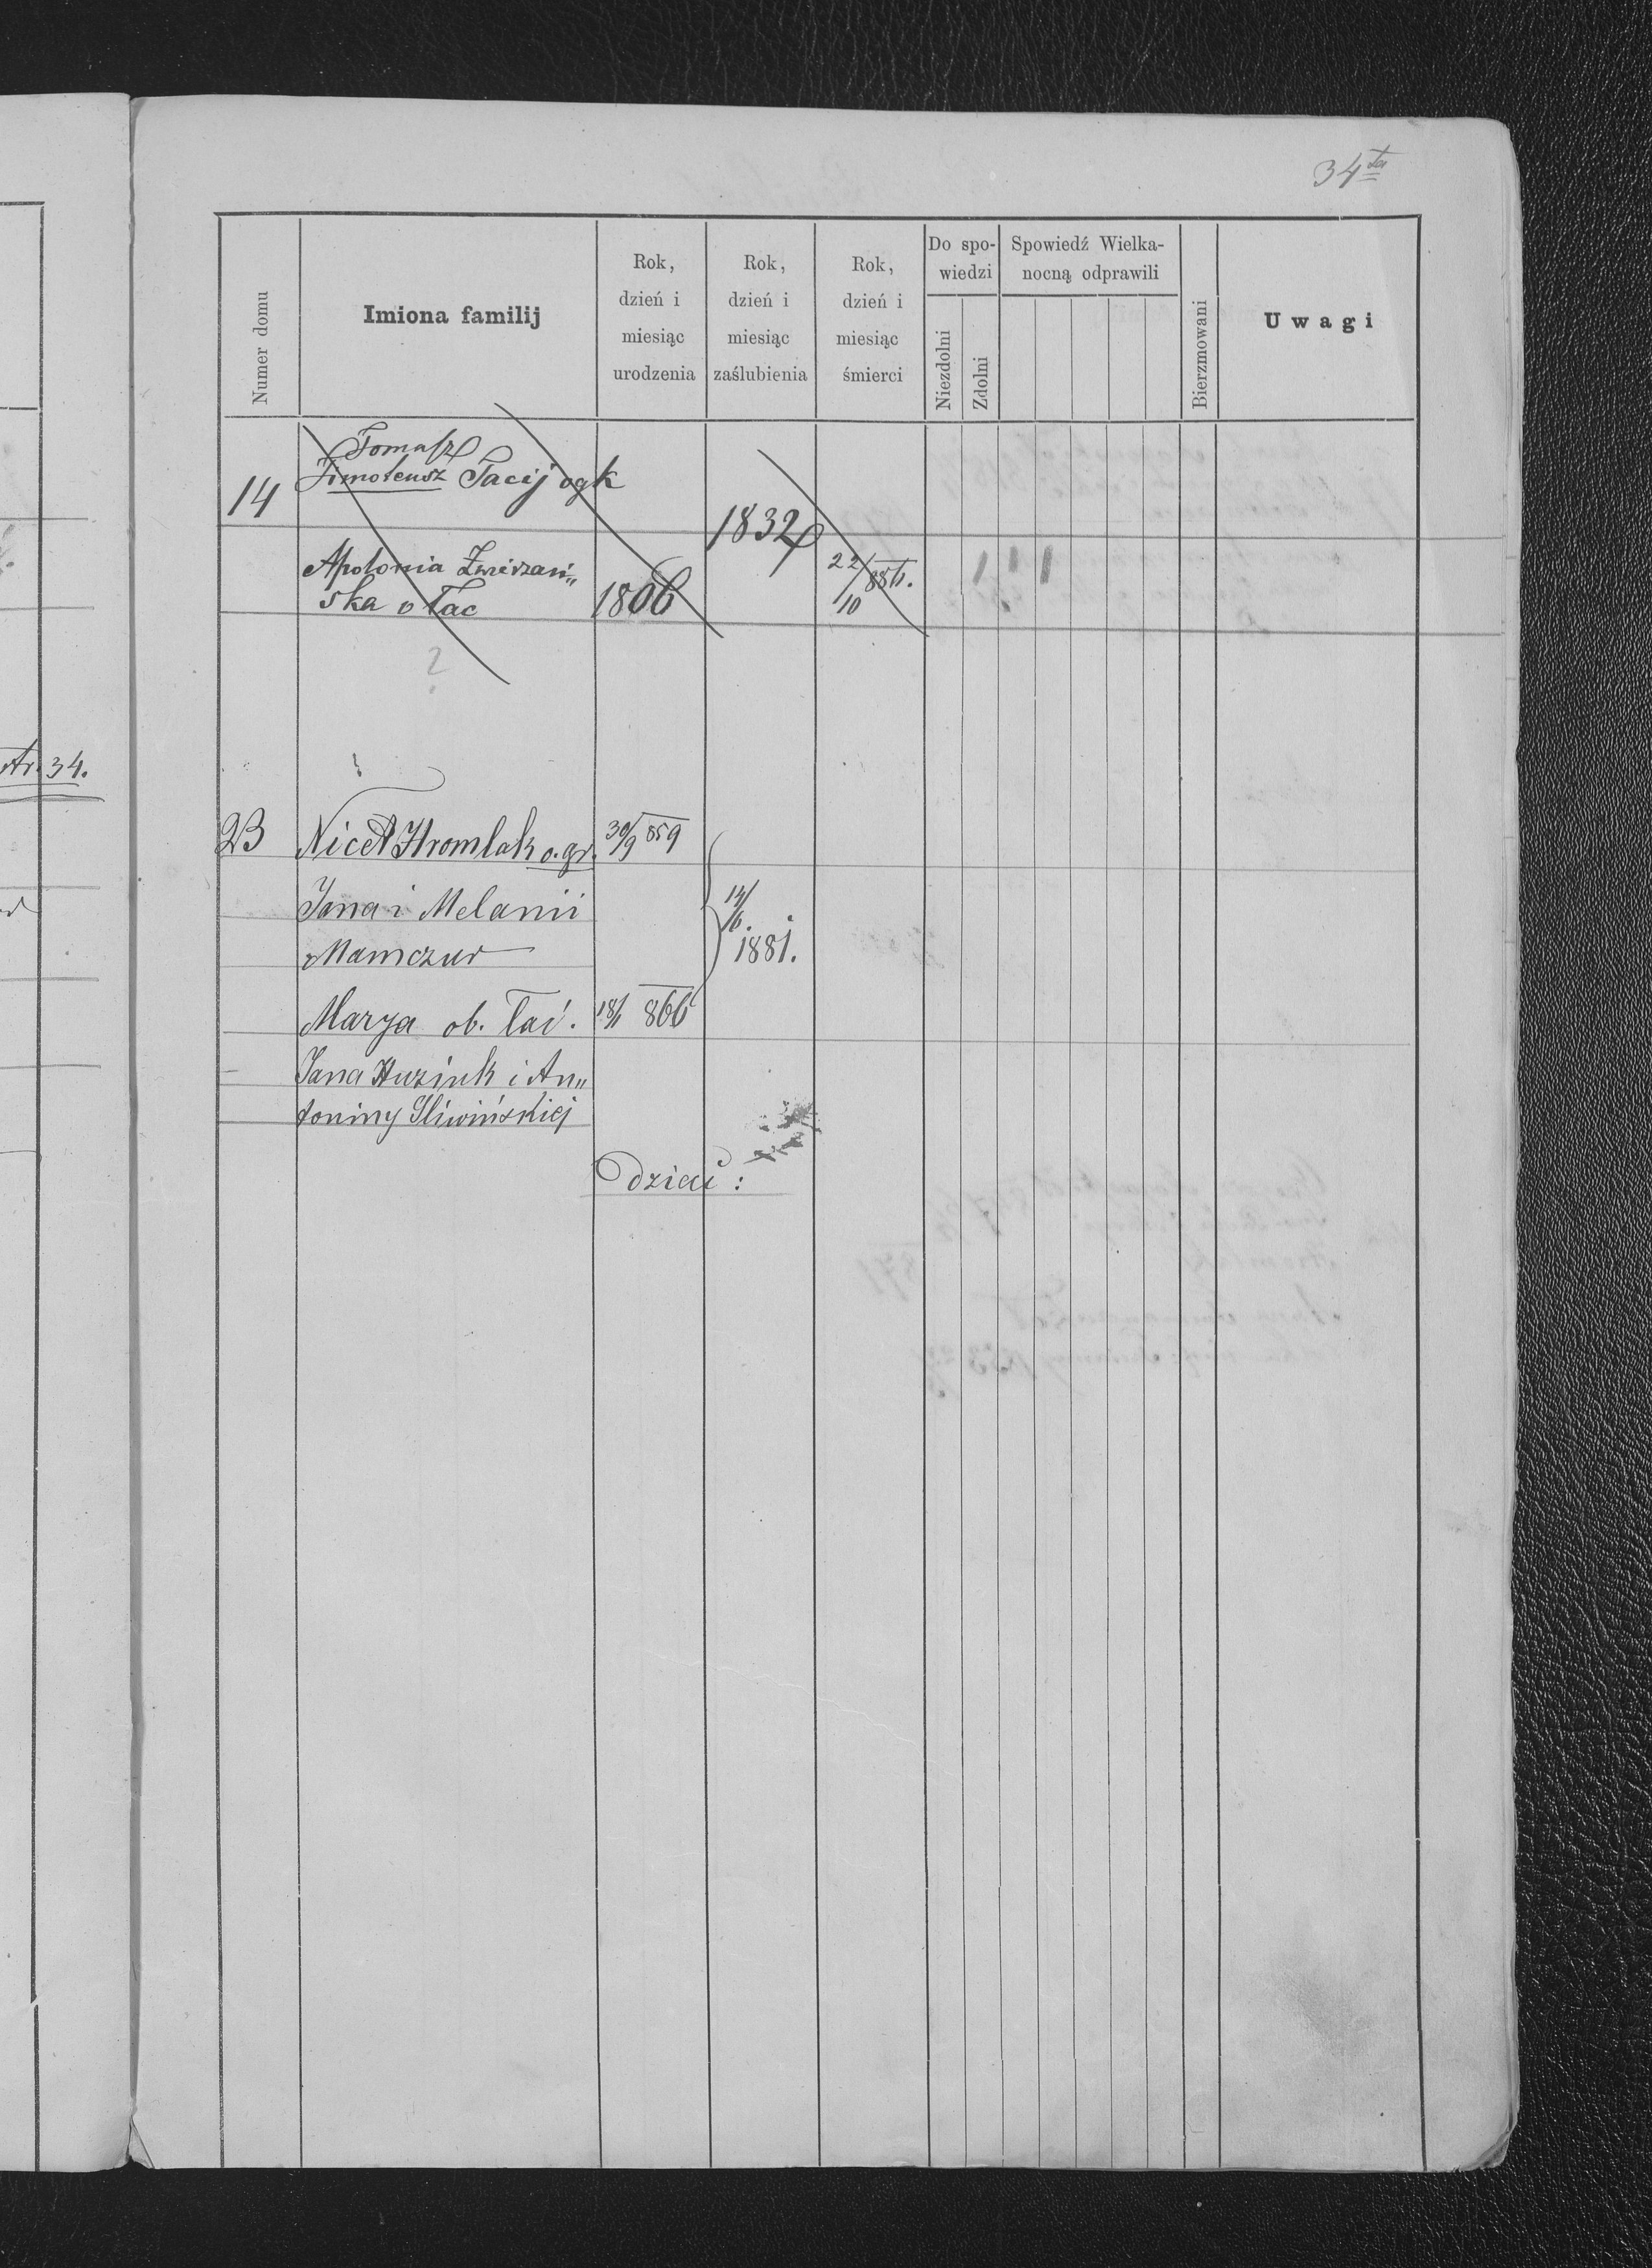 34ta
Numer domu
Imiona familij
Rok,
dzień i
miesiąc
urodzenia
Rok,
dzień i
miesiąc
zaślubienia
Rok,
dzień i
miesiąc
śmierci
Do spo-
wiedzi
Niezdolni
Zdolni
Spowiedź Wielka-
nocną odprawili
Bierzmowani
Uwagi
Tomasz
14 Timoteusz Tacij ogk
1832
Apolonia
ska o łac 1806 22/10 886.
?
str. 34.
23 Nicet Hromlak o. gr. 30/9 859
Jana i Melanii
Mamczur
14/6 1881.
Marya ob. łać. 18/1 866
Jana Huziuk i An„
toniny Śliwińskiej
Dzieci :